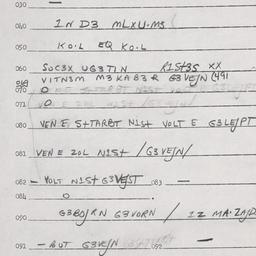 030
040 1 N D3 MLXU.MS
050 KO.L EQ KO.L
060 SUC3X UG3TIN R1ST3S XX
VITN3M M3KAB3R G3VEJN (491
070 O
071 O
080 VEN E STTARBT N1St VOLT E G3LEJPT
081 VEN E ZOL N1St /G3VEJN/
082 — VOLT N1St G3VEJST 083 —
084 O
090 G3BOJRN G3VORN / IZ MA.ZMJD
091 — BUT G3VEJN 092 —